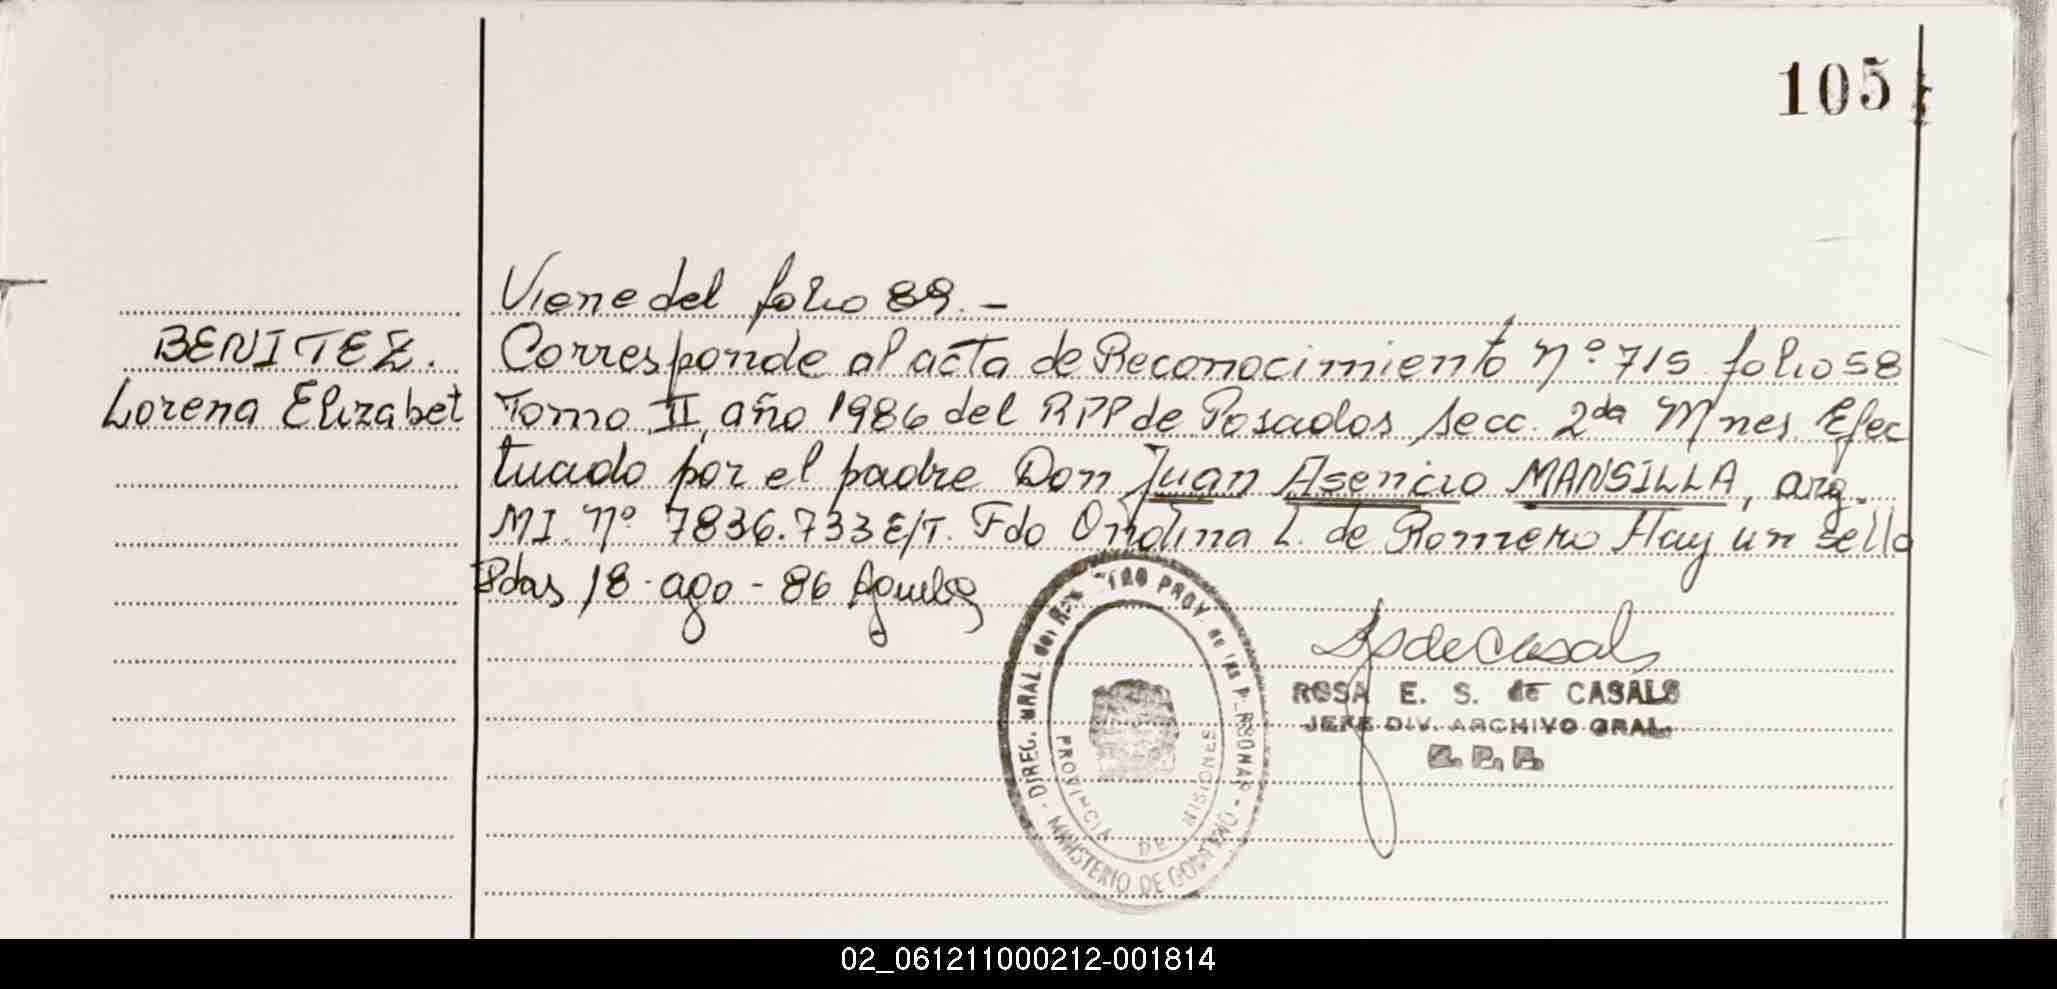 105
Viene del folio 89.-
BENITEZ.
Lorena Elizabet
Corresponde al acta de Reconocimiento Nº 715 folio 58
Tomo II, año 1986 del RPP de Posadas secc. 2da Mnes. Efec
tuado por el padre Don Juan Asencio MANSILLA, arg.
MI. Nº 7836.733 E/T. Fdo Ondina L. de Romero Hay un sello
Pdas 18-ago-86
DIREC. GRAL. del REGISTRO PROV. de las PERSONAS - MINISTERIO DE GOBIERNO -
PROVINCIA DE MISIONES
ROSA E. S. de CASALS
JEFE DIV. ARCHIVO GRAL.
R. P. P.
02_061211000212-001814